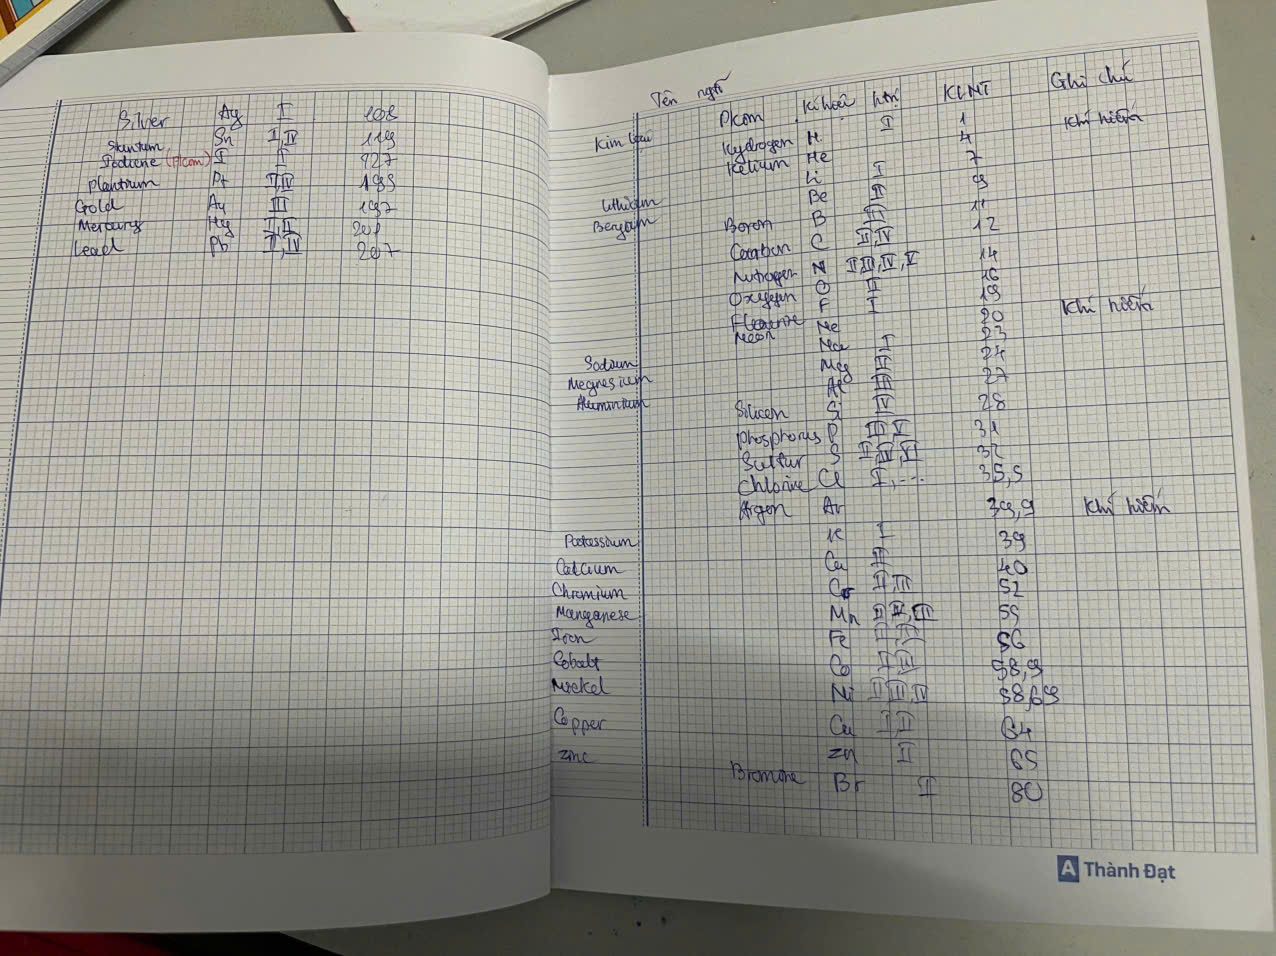 Silver Ag I 108
Stantum Sn II, IV 119
Iodine (Pkom) I I 127
Plantium Pt II, IV 195
Gold Au III 197
Mercury Hg I, II 201
Lead Pb II, IV 207
Tên ngtố
Kim loại Pkom Kí hoá htrị KLNT Ghi chú
Hydrogen H I 1
Helium He 4 Khí hiếm
Lithium Li I 7
Beryium Be II 9
Boron B III 11
Carabon C II, IV 12
Nitrogen N II III, IV, V 14
Oxygyen O II 16
Flourine F I 19
Neon Ne 20 Khí hiếm
Sodium Na I 23
Megnesium Mg II 24
Aluminium Al III 27
Silicon Si IV 28
Phosphorus P III V 31
Sulfur S II IV VI 32
Chlorine Cl I, ... 35,5
Argon Ar 39,9 Khí hiếm
Potassium K I 39
Calcium Ca II 40
Chromium Cr II, III 52
Manganese Mn 55
Iron Fe II, III 56
Cobalt Co 58,9
Nickel Ni II III, IV 58,69
Copper Cu I, II 64
Zinc Zn II 65
Bromine Br I 80
A Thành Đạt